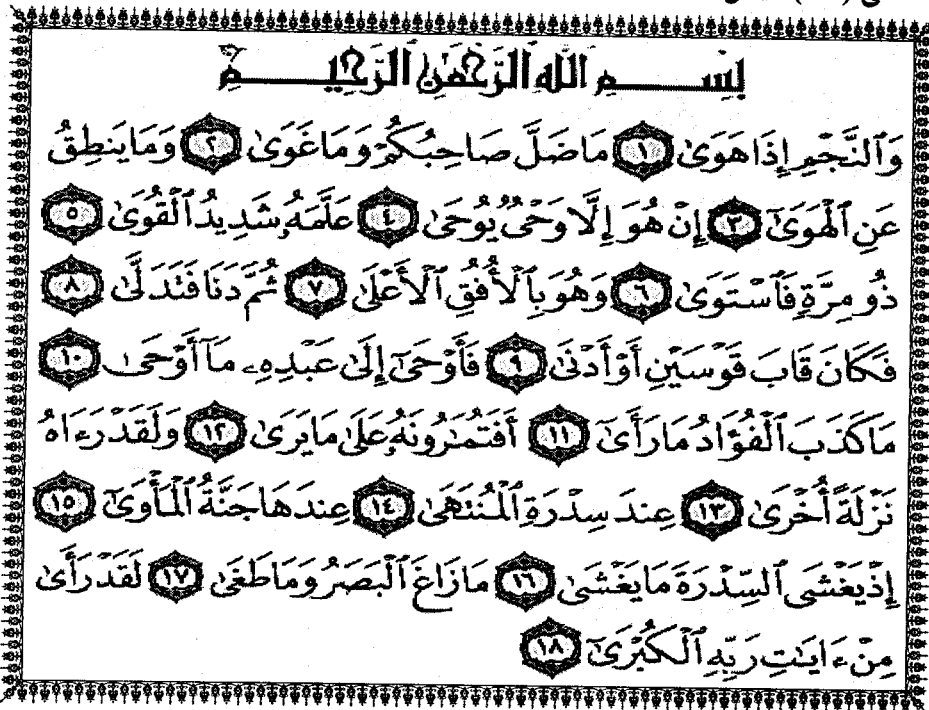 بِسْمِ اللَّهِ الرَّحْمَٰنِ الرَّحِيمِ
وَٱلنَّجْمِ إِذَا هَوَىٰ ١ مَا ضَلَّ صَاحِبُكُمْ وَمَا غَوَىٰ ٢ وَمَا يَنطِقُ
عَنِ ٱلْهَوَىٰٓ ٣ إِنْ هُوَ إِلَّا وَحْىٌ يُوحَىٰ ٤ عَلَّمَهُۥ شَدِيدُ ٱلْقُوَىٰ ٥
ذُو مِرَّةٍ فَٱسْتَوَىٰ ٦ وَهُوَ بِٱلْأُفُقِ ٱلْأَعْلَىٰ ٧ ثُمَّ دَنَا فَتَدَلَّىٰ ٨
فَكَانَ قَابَ قَوْسَيْنِ أَوْ أَدْنَىٰ ٩ فَأَوْحَىٰٓ إِلَىٰ عَبْدِهِۦ مَآ أَوْحَىٰ ١٠
مَا كَذَبَ ٱلْفُؤَادُ مَا رَأَىٰٓ ١١ أَفَتُمَٰرُونَهُۥ عَلَىٰ مَا يَرَىٰ ١٢ وَلَقَدْ رَءَاهُ
نَزْلَةً أُخْرَىٰ ١٣ عِندَ سِدْرَةِ ٱلْمُنتَهَىٰ ١٤ عِندَهَا جَنَّةُ ٱلْمَأْوَىٰٓ ١٥
إِذْ يَغْشَى ٱلسِّدْرَةَ مَا يَغْشَىٰ ١٦ مَا زَاغَ ٱلْبَصَرُ وَمَا طَغَىٰ ١٧ لَقَدْ رَأَىٰ
مِنْ ءَايَٰتِ رَبِّهِ ٱلْكُبْرَىٰٓ ١٨